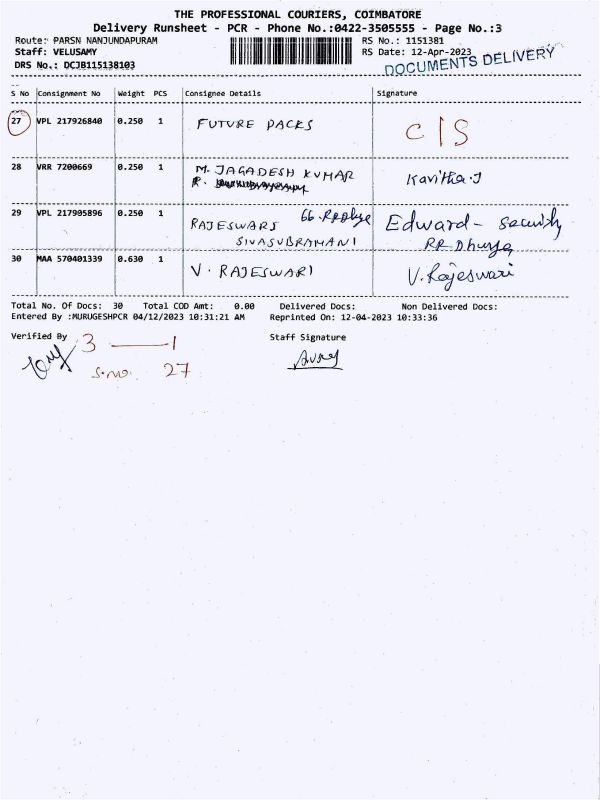 THE PROFESSIONAL COURIERS, COIMBATORE
Delivery Runsheet - PCR - Phone No.:0422-3505555 - Page No.:3
Route: PARSN NANJUNDAPURAM RS No.: 1151381
Staff: VELUSAMY RS Date: 12-Apr-2023
DRS No.: DCJB115138103 DOCUMENTS DELIVERY
S No Consignment No Weight PCS Consignee Details Signature
27 VPL 217926840 0.250 1 FUTURE PACKS C/S
28 VRR 7200669 0.250 1 M. JAGADESH KUMAR Kavitha.J
R.
29 VPL 217905896 0.250 1 RAJESWARS 66. Edward - Security
SIVASUBRAMANI RR Dhurya
30 MAA 570401339 0.630 1 V. RAJESWARI V. Rajeswari
Total No. Of Docs: 30 Total COD Amt: 0.00 Delivered Docs: Non Delivered Docs:
Entered By :MURUGESHPCR 04/12/2023 10:31:21 AM Reprinted On: 12-04-2023 10:33:36
Verified By 3 — 1 Staff Signature
S.no. 27